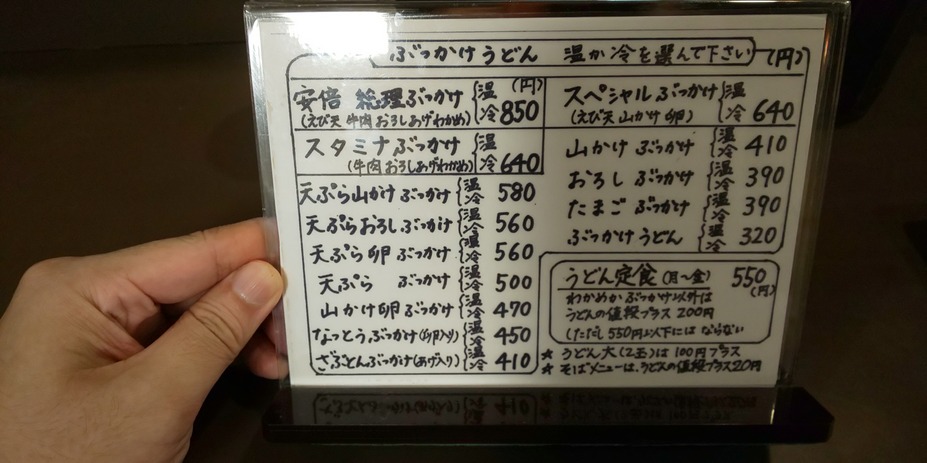 ぶっかけうどん 温か冷を選んで下さい (円)
安倍 総理ぶっかけ 温 冷 (円) 850
(えび天 牛肉 おろしあげわかめ)
スタミナぶっかけ 温 冷 640
(牛肉 おろしあげわかめ)
天ぷら山かけ ぶっかけ 温 冷 580
天ぷらおろしぶっかけ 温 冷 560
天ぷら 卵 ぶっかけ 温 冷 560
天ぷら ぶっかけ 温 冷 500
山かけ卵 ぶっかけ 温 冷 470
なっとうぶっかけ(卵入り) 温 冷 450
ざぶとんぶっかけ(あげ入り) 温 冷 410
スペシャルぶっかけ 温 冷 640
(えび天 山かけ 卵)
山かけ ぶっかけ 温 冷 410
おろし ぶっかけ 温 冷 390
たまご ぶっかけ 温 冷 390
ぶっかけうどん 温 冷 320
うどん定食(月〜金) 550
(円)
わかめかぶっかけ以外は
うどんの値段プラス 200円
(ただし 550円以下には ならない
★ うどん大(2玉)は 100円プラス
★ そばメニューは、うどんの値段プラス20円